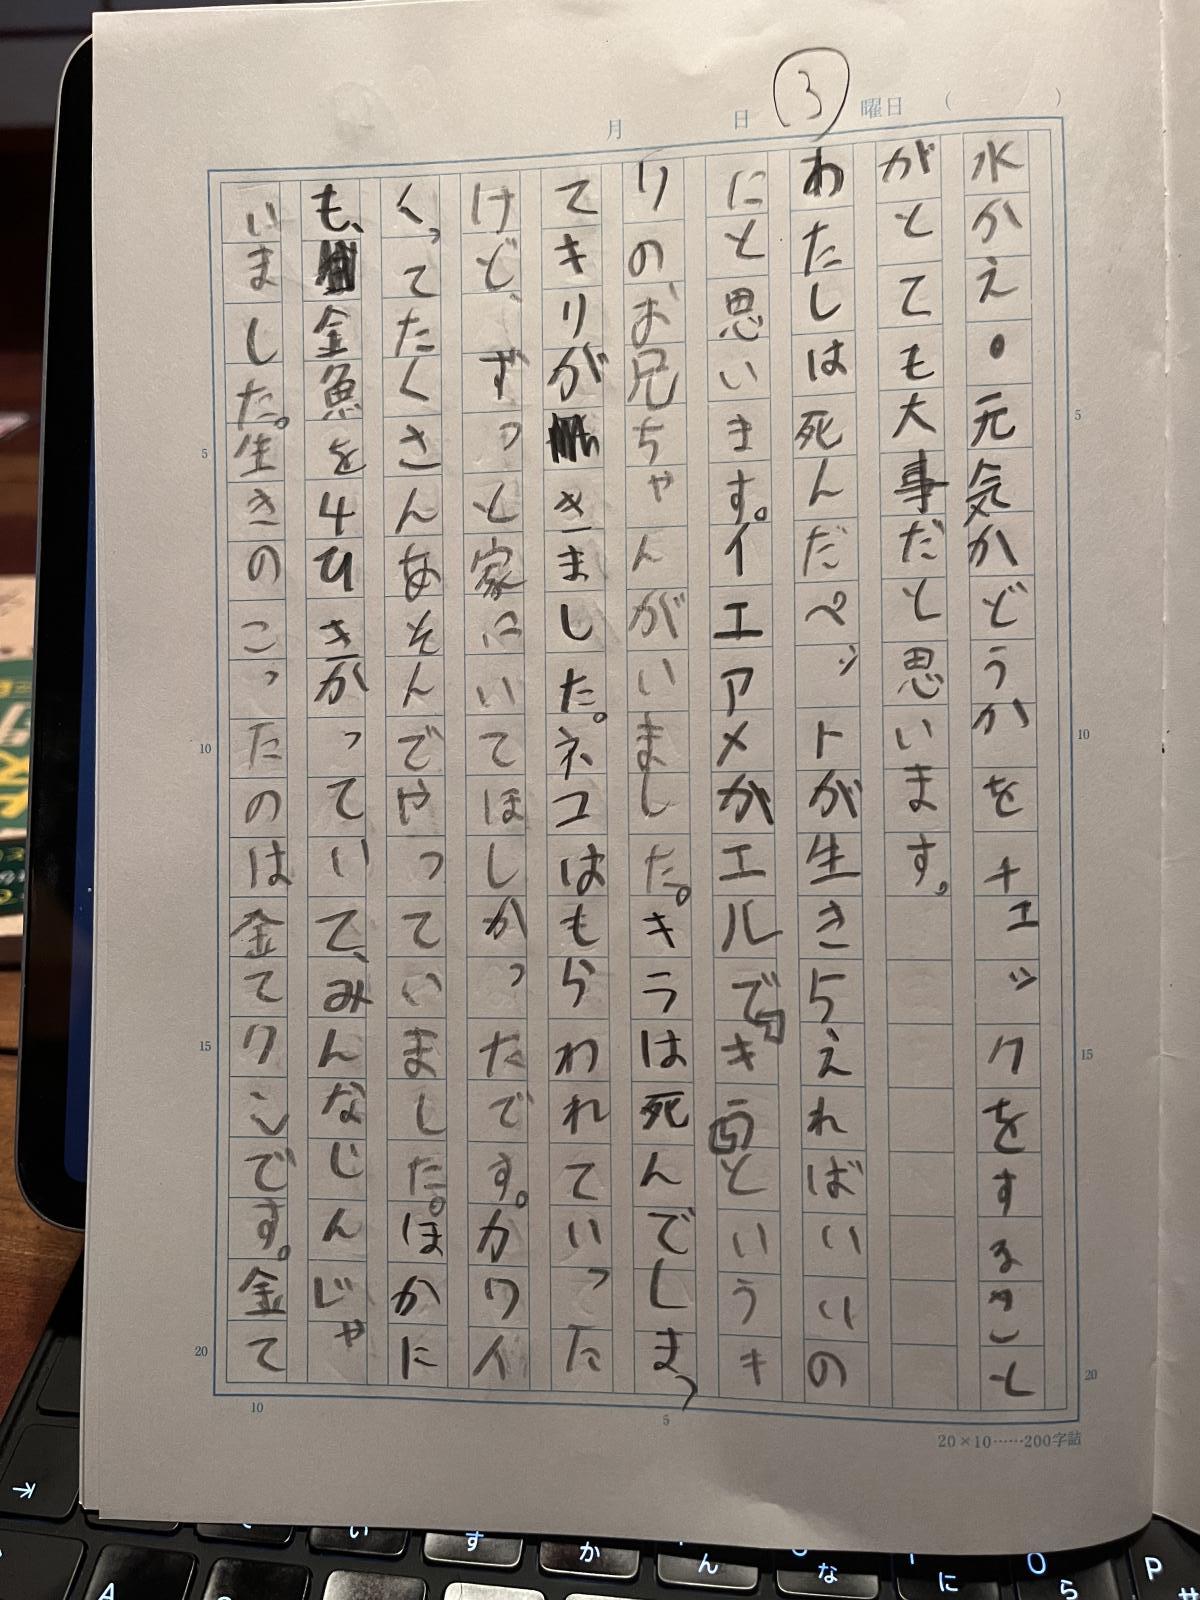 3
月 日 曜日 ( )
水かえ・元気かどうかをチェックをすること
がとても大事だと思います。
わたしは死んだペットが生き返れればいいの
にと思います。イエアメガエルで
りのお兄ちゃんがいました。キラは死んでしまっ
てキリがきました。ネコはもらわれていった
けど、ずっと家にいてほしかったです。カワイ
くってたくさんあそんでやっていました。ほかに
も、金魚を4ひきかっていて、みんなじんじゃ
いました。生きのこったのは金てクンです。金て
5
10
15
20
5
10
15
20
5
10
20×10……200字詰